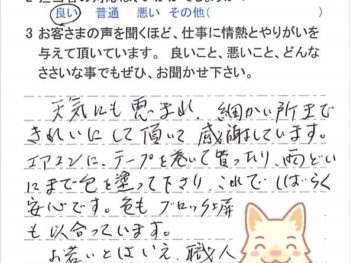 良い 普通 悪い その他(
3 お客さまの声を聞くほど、仕事に情熱とやりがいを
与えて頂いています。 良いこと、悪いこと、どんな
ささいな事でもぜひ、お聞かせ下さい。
天気にも恵まれ、細かい所まで
きれいにして頂いて感謝しています。
エアコンに、テープを巻いて貰ったり、雨どい
にまで色を塗って下さり、これでしばらく
安心です。色もブロック塀
も似合っています。
お若いとはいえ、職人